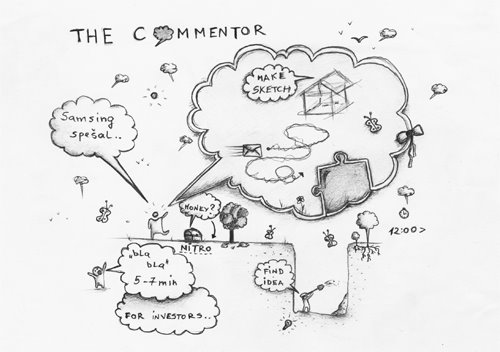 THE COMMENTOR
MAKE
SKETCH
Samsing
spešal..
HONEY?
NITRO
12:00>
„bla
bla"
5-7 min
FIND
IDEA
FOR INVESTORS..